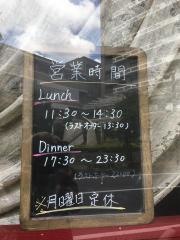 営業時間
Lunch
11:30～14:30
(ラストオーダー 13:30)
Dinner
17:30～23:30
(ラストオーダー 22:00)
※月曜日定休